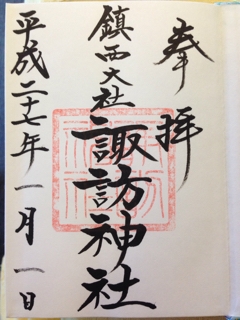 奉拝
鎮西大社
諏訪神社
平成二十七年一月一日